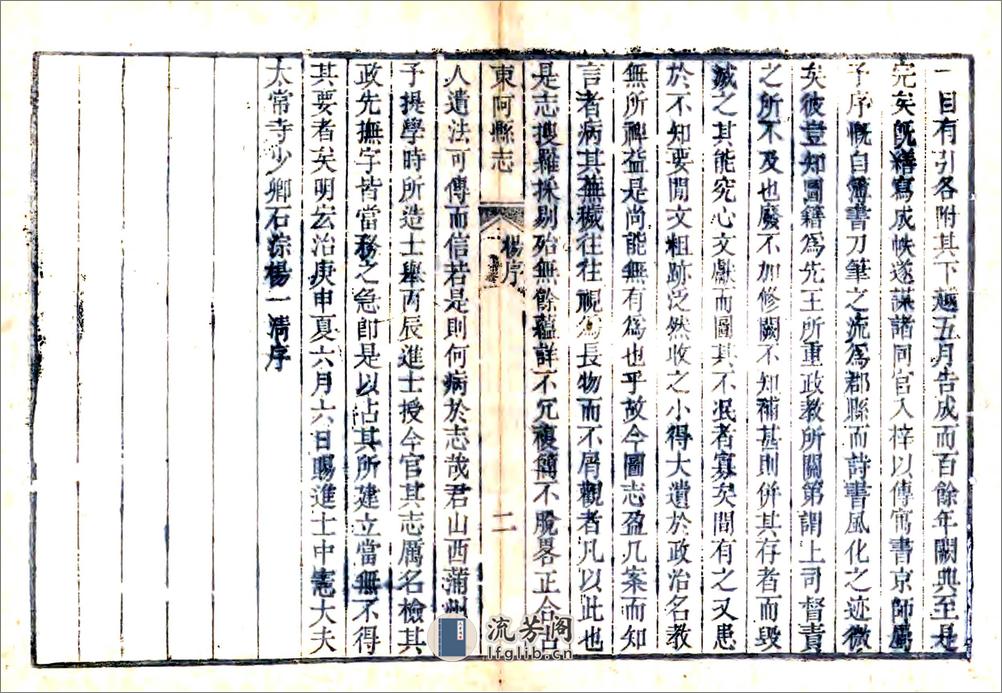 一目有引各附其下越五月告成而百餘年闕典至是
完矣旣繕寫成帙遂謀諸同官入梓以傳寓書京師屬
予序慨自簿書刀筆之流為郡縣而詩書風化之迹微
矣彼豈知圖籍為先王所重政教所關第謂上司督責
之所不及也廢不加修闕不知補甚則併其存者而毀
滅之其能究心文獻而圖其不泯者寡矣間有之又患
於不知要閒文粗跡泛然收之小得大遺於政治名教
無所裨益是尚能無有為也乎故今圖志盈几案而知
言者病其蕪穢往往視為長物而不屑觀者凡以此也
是志搜羅採剔殆無餘蘊詳不冗複簡不脫畧正合古
東阿縣志
楊序
二
人遺法可傳而信若是則何病於志哉君山西蒲州
予提學時所造士舉丙辰進士授今官其志厲名檢其
政先撫字皆當務之急即是以占其所建立當無不得
其要者矣明宏治庚申夏六月六日賜進士中憲大夫
太常寺少卿石淙楊一清序
流芳阁
lfglib.cn